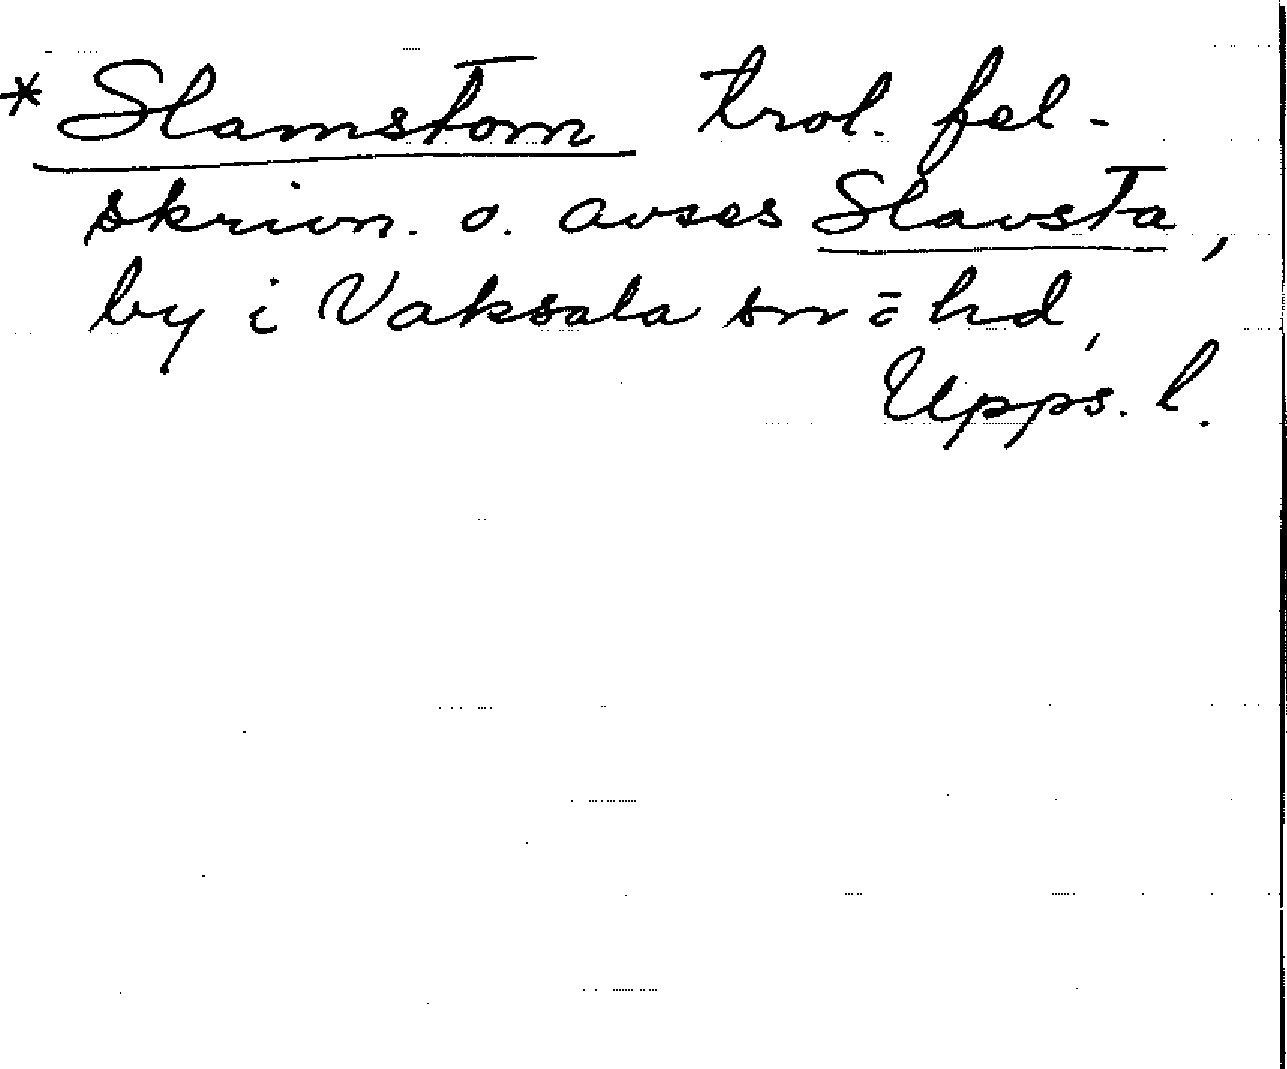 * Slamstorn trol. fel-
skrivn. o. avses Slavsta,
by i Vaksala sn o hd,
Upps. l.